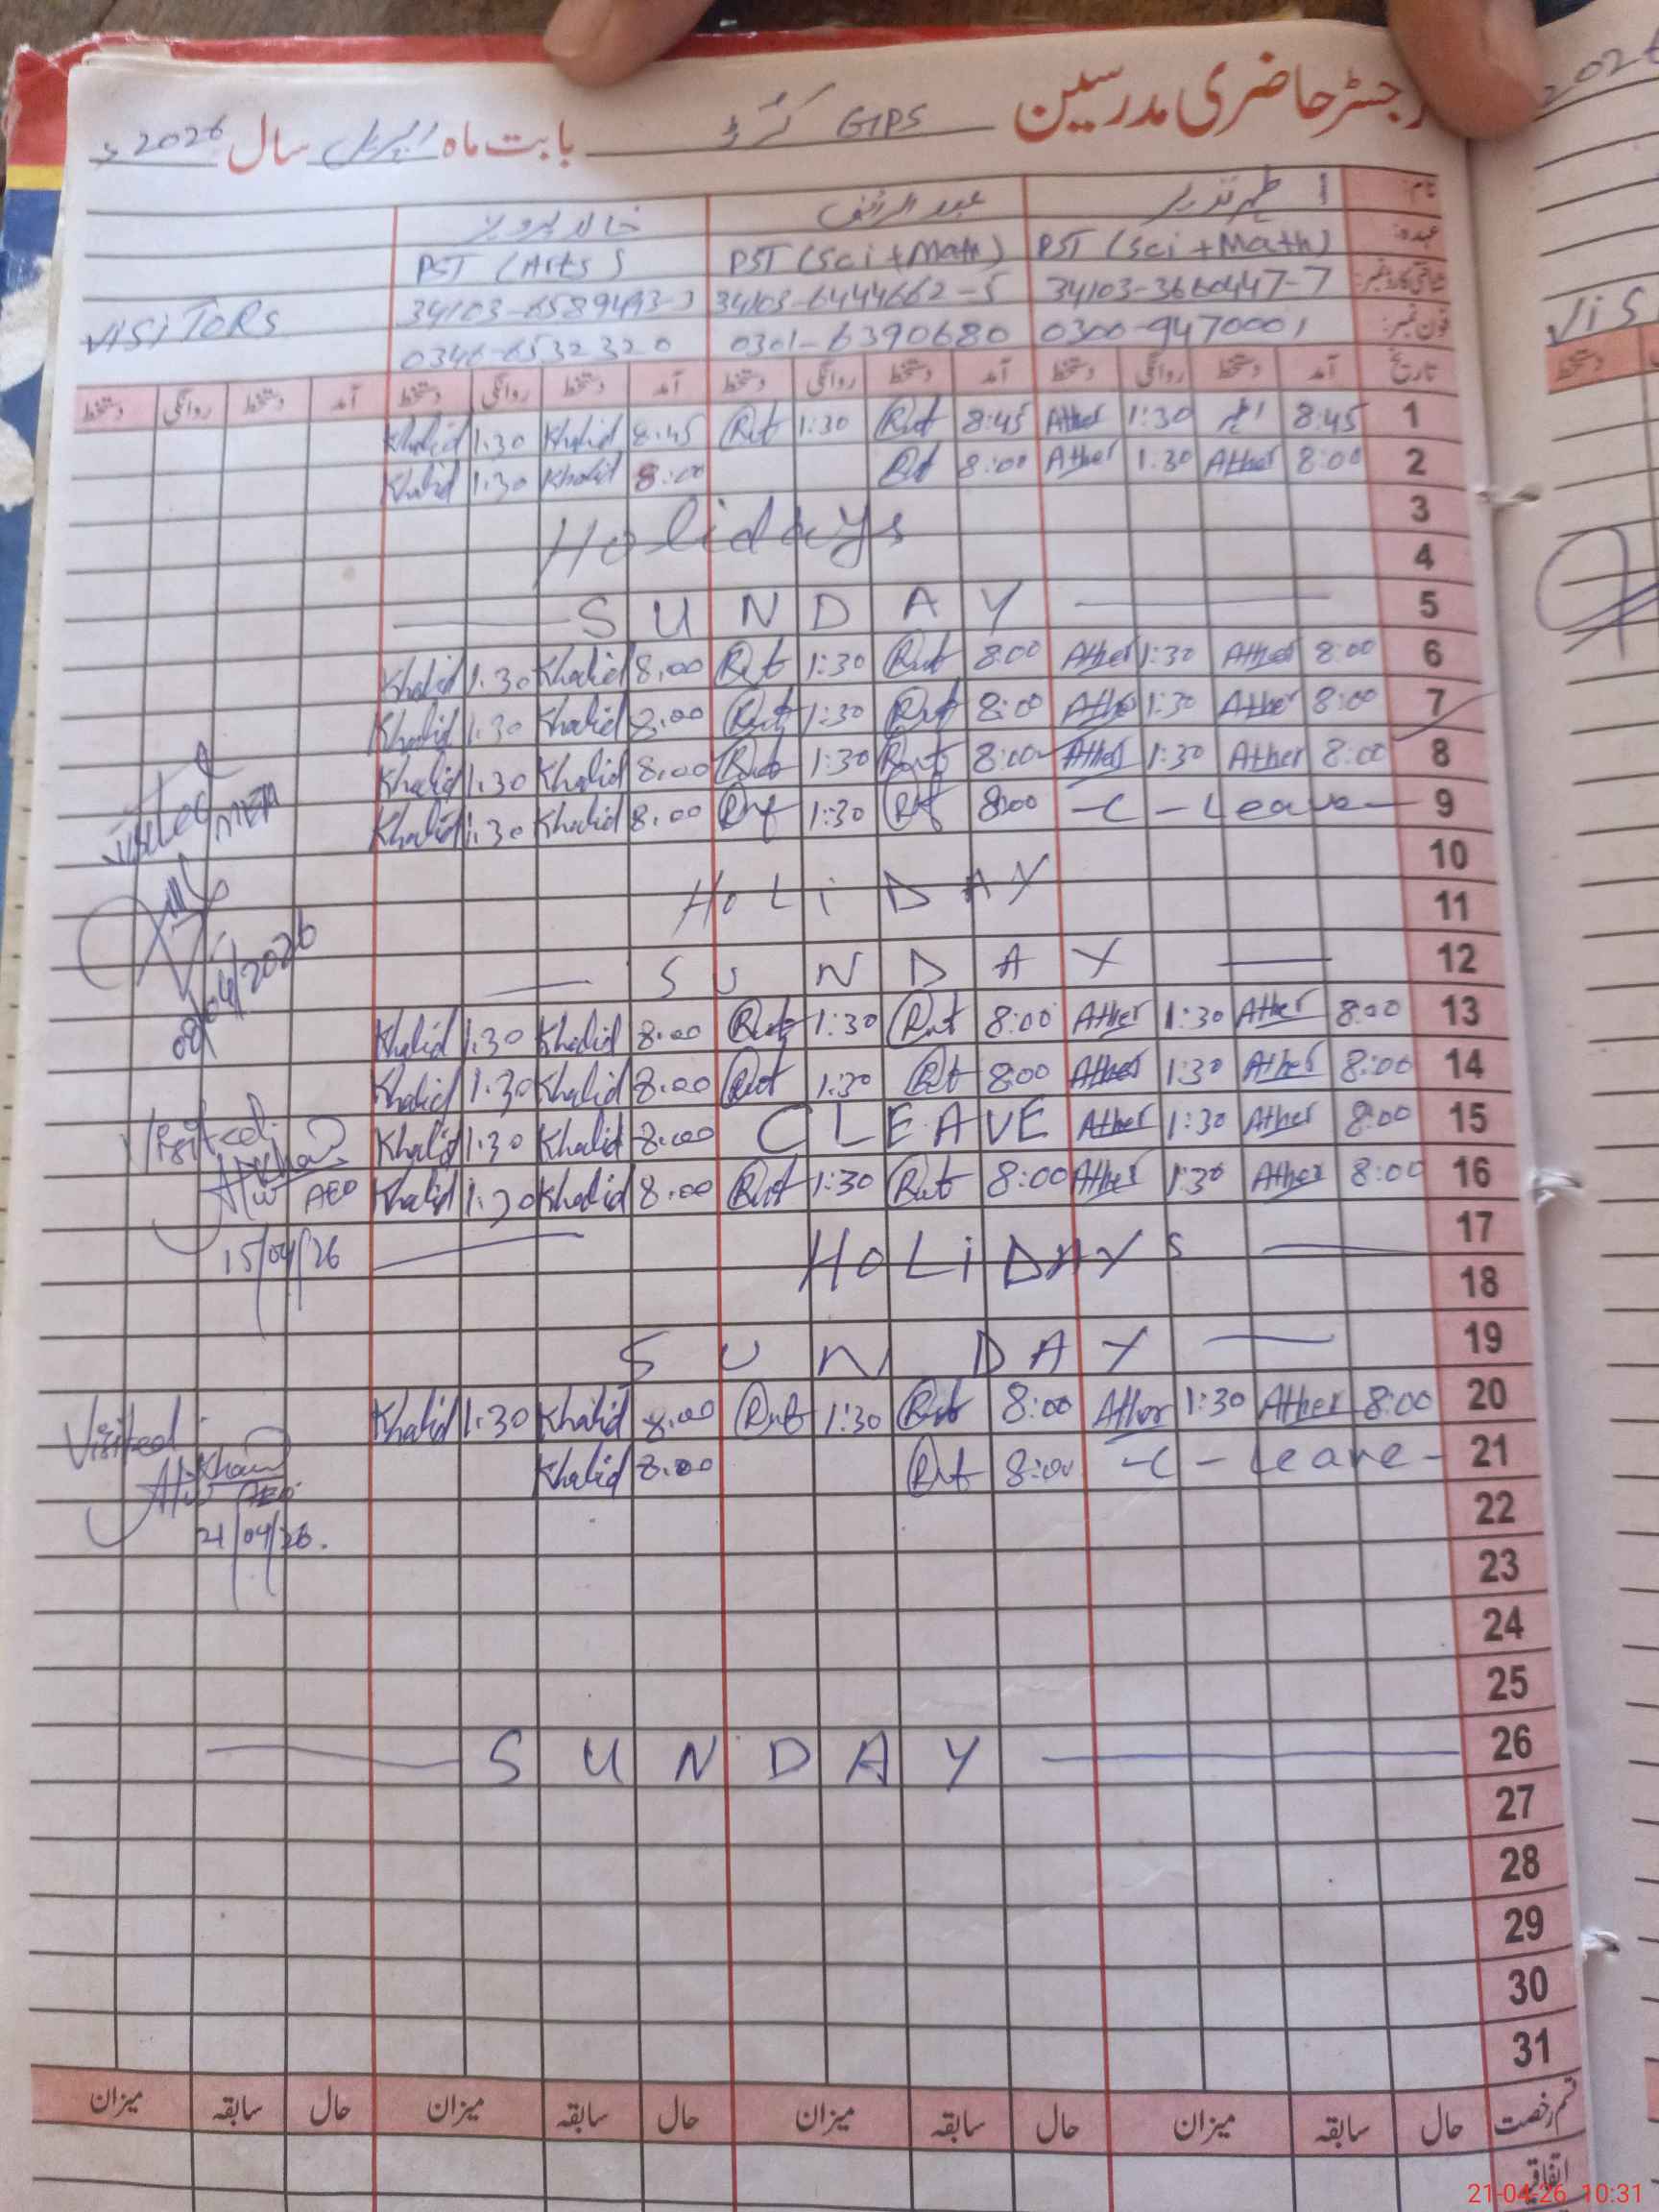 رجسٹر حاضری مدرسین GPS بابت ماہ اپریل سال 2026ء
نام: اطہر نذیر عبدالرؤف خالد پرویز
عہدہ: PST (Sci + Math) PST (Sci + Math) PST (Arts)
شناختی کارڈ نمبر: 34103-3660447-7 34103-6444662-5 34103-6589493-3
فون نمبر: 0300-9470001 0301-6390680 0346-6532320 VISITORS
تاریخ آمد دستخط روانگی دستخط آمد دستخط روانگی دستخط آمد دستخط روانگی دستخط آمد دستخط روانگی دستخط
1 8:45 اطہر 1:30 Ather 8:45 Rut 1:30 Rut 8:45 Khalid 1:30 Khalid
2 8:00 Ather 1:30 Ather 8:00 Rut 8:00 Khalid 1:30 Khalid
3 Holidays
4
5 SUNDAY
6 8:00 Ather 1:30 Ather 8:00 Rut 1:30 Rut 8:00 Khalid 1:30 Khalid
7 8:00 Ather 1:30 Ather 8:00 Rut 1:30 Rut 8:00 Khalid 1:30 Khalid
8 8:00 Ather 1:30 Ather 8:00 Rut 1:30 Rut 8:00 Khalid 1:30 Khalid
Visited MEA
08/04/2026
9 -C-Leave- 8:00 Rut 1:30 Rut 8:00 Khalid 1:30 Khalid
10 HOLiDAY
11
12 SUNDAY
13 8:00 Ather 1:30 Ather 8:00 Rut 1:30 Rut 8:00 Khalid 1:30 Khalid
14 8:00 Ather 1:30 Ather 8:00 Rut 1:30 Rut 8:00 Khalid 1:30 Khalid
15 8:00 Ather 1:30 Ather C LEAVE 8:00 Khalid 1:30 Khalid
Visited
AEO
15/04/26
16 8:00 Ather 1:30 Ather 8:00 Rut 1:30 Rut 8:00 Khalid 1:30 Khalid
17 HOLiDAYS
18
19 SUNDAY
20 8:00 Ather 1:30 Ather 8:00 Rut 1:30 Rut 8:00 Khalid 1:30 Khalid
21 -C-Leave- 8:00 Rut 8:00 Khalid
Visited
AEO
21/04/26.
22
23
24
25
26 SUNDAY
27
28
29
30
31
قسم رخصت حال سابقہ میزان حال سابقہ میزان حال سابقہ میزان حال سابقہ میزان
اتفاقیہ
21-04-26 10:31